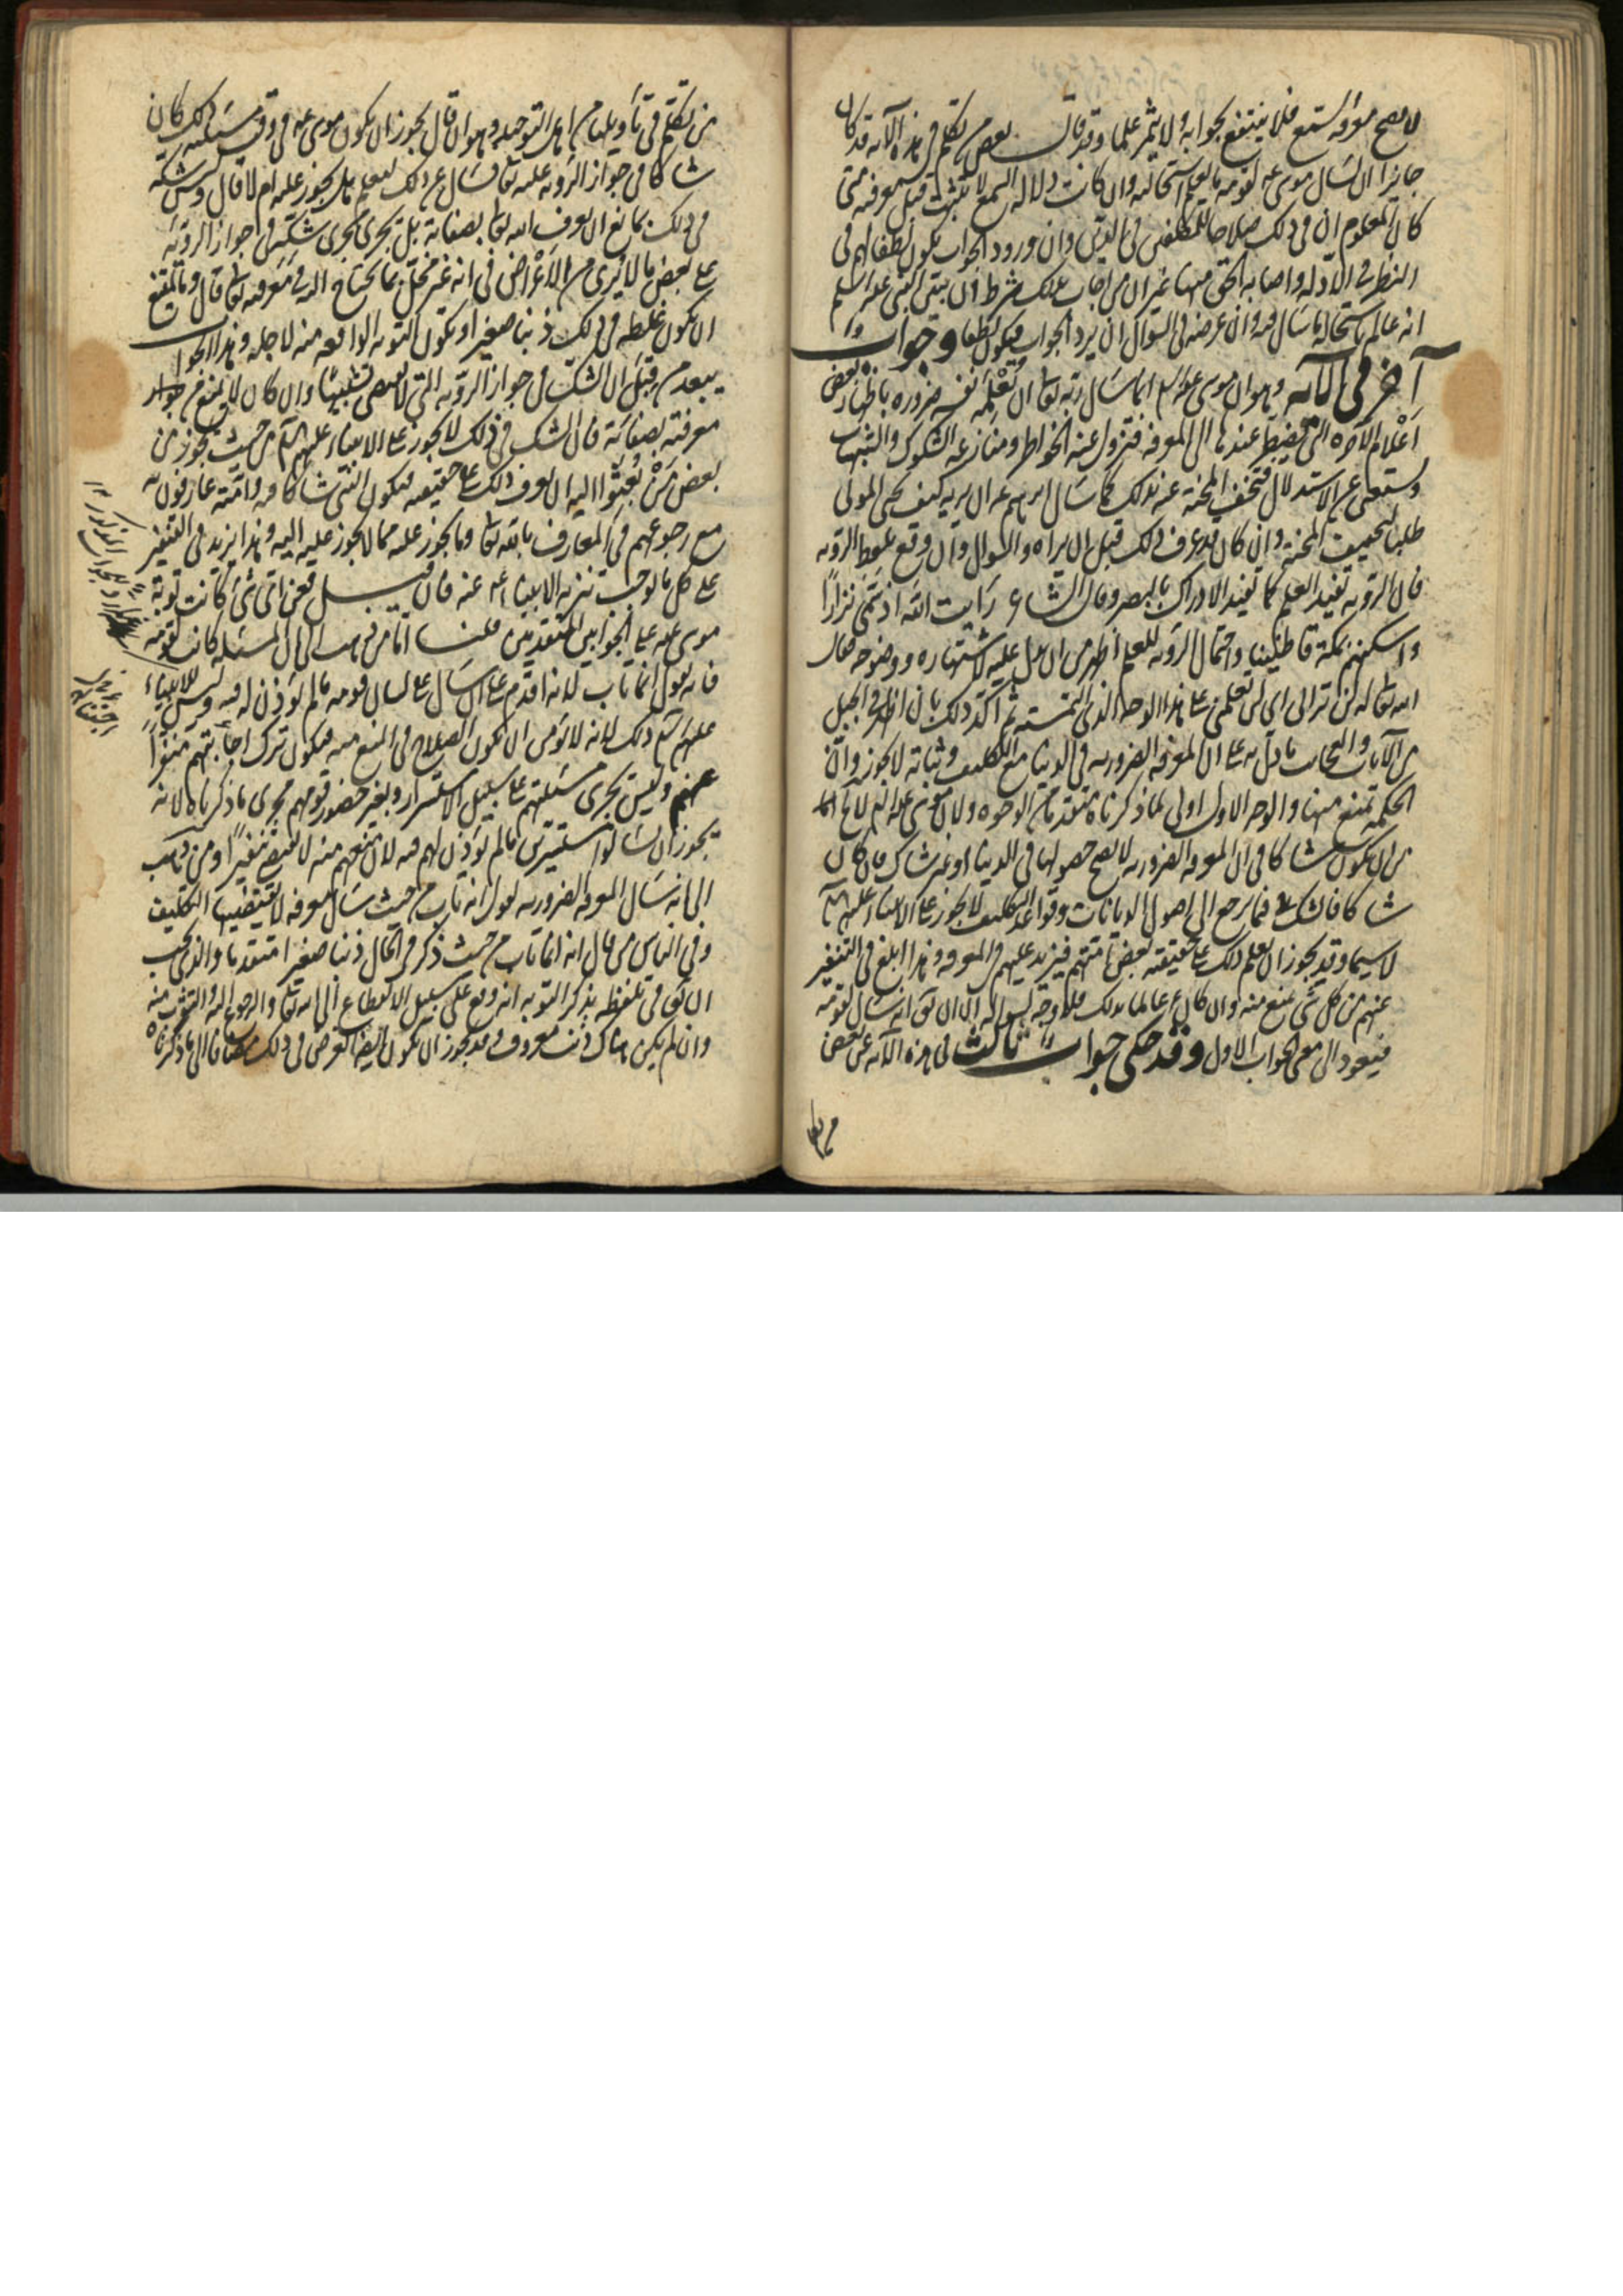 لا يصح معرفة السمع فلا ينتفع بجوابه ولا يثمر علما وقد قال بعض من تكلم في هذه الآية قد كان
جائزا ان يسال موسى ع لقومه ما يعلم استحالته وان كانت دلالة السمع لا تثبت قبل معرفته متى
كان المعلوم ان في ذلك صلاحا للمكلفين في الدين وان ورود الجواب يكون لطفا لهم في
النظر في الادلة واصابة الحق منها غير ان من اجاب بذلك شرط ان يبين النبي عليه السلم
انه عالم باستحالة ما سال فيه وان غرضه في السؤال ان يرد الجواب فيكون لطفا وجواب
آخر في الآية وهو ان موسى عليه السلم انما سال ربه تعالى ان يعلمه نفسه ضرورة باظهار بعض
اعلام الآخرة التي يضطر عندها الى المعرفة فتزول عنه الخواطر ومنازعة الشكوك والشبهات
ويستغنى عن الاستدلال فتخف المحنة عنه بذلك كما سال ابرهيم ع ان يريه كيف يحيي الموتى
طلبا لتخفيف المحنة وان كان قد عرف ذلك قبل ان يراه والسؤال وان وقع بلفظ الرؤية
فان الرؤية تفيد العلم كما تفيد الادراك بالبصر وقال الشاعر رايت الله اذ سمى نزارا
واسكنهم بمكة قاطنينا واحتمال الرؤية للعلم اظهر من ان يدل عليه لاشتهاره ووضوحه فقال
الله تعالى له لن تراني اي لن تعلمني على هذا الوجه الذي التمسته ثم اكد ذلك بان اظهر في الجبل
من الآيات والعجائب ما دل به على ان المعرفة الضرورية في الدنيا مع التكليف وثباته لا يجوز وان
الحكمة تمنع منها والوجه الاول اولى لما ذكرناه متقدما من الوجوه ولان موسى عليه السلم لا يخ اما
من ان يكون شاكا في ان المعرفة الضرورية لا يصح حصولها في الدنيا او غير شاك فان كان
شاكا فالشك في فيما يرجع الى اصول الديانات وقواعد التكليف لا يجوز على الانبياء عليهم السلم
لا سيما وقد يجوز ان يعلم ذلك على حقيقته بعض امتهم فيزيد عليهم في المعرفة وهذا ابلغ في التنفير
عنهم من كل شي يمنع منه وان كان ع عالما بذلك فلا وجه لسؤاله الا ان يق انه سال لقومه
فيعود الى معنى الجواب الاول وقد حكى جواب ثالث في هذه الآية عن بعض
من تكلم في تاويلها من اهل التوحيد وهو ان قال يجوز ان يكون موسى ع في وقت مسئلته ذلك كان
شاكا في جواز الرؤية عليه تعالى فسال عن ذلك ليعلم هل يجوز عليه ام لا قال وليس شكه
في ذلك بمانع ان يعرف الله تعالى بصفاته بل يجري مجرى شكه في جواز الرؤية
على بعض ما لا يرى من الاعراض في انه غير مخل بما يحتاج اليه في معرفته تعالى قال ولا يمتنع
ان يكون غلطه في ذلك ذنبا صغيرا وتكون التوبة الواقعة منه لاجله وهذا الجواب
يبعد من قبل ان الشك في جواز الرؤية التي لا تقتضي تشبيها وان كان لا يمنع من جواز
معرفته بصفاته فان الشك في ذلك لا يجوز على الانبياء عليهم السلم من حيث يجوز من
بعض من بعثوا اليه ان يعرف ذلك على حقيقته فيكون النبي شاكا فيه وامته عارفون به
مع رجوعهم في المعارف بالله تعالى وما يجوز عليه مما لا يجوز عليه اليه وهذا يزيد في التنفير
على كل ما يوجب تنزيه الانبياء ع عنه فان قيل فعن اي شيء كانت توبة
موسى ع على الجوابين المتقدمين قلنا اما من ذهب الى ان المسئلة كانت لقومه
فانه يقول انما تاب لانه اقدم على ان سال على لسان قومه ما لم يؤذن له فيه وليس للانبياء
عليهم السلم ذلك لانه لا يؤمن ان يكون الصلاح في المنع منه فيكون ترك اجابتهم منفرا
عنهم وليس تجري مسئلتهم على سبيل الاستسرار وبغير حضور قومهم مجرى ما ذكرناه لانه
يجوز ان يسالوا مستسرين ما لم يؤذن لهم فيه لان منعهم منه لا يقتضي تنفيرا ومن ذهب
الى انه سال المعرفة الضرورية يقول انه تاب من حيث سال معرفة لا يقتضيها التكليف
وفي الناس من قال انه انما تاب من حيث ذكر في الحال ذنبا صغيرا متقدما والذي يجب
ان يق في تلفظه بذكر التوبة انه وقع على سبيل الانقطاع الى الله تعالى والرجوع اليه والتقرب منه
وان لم يكن هناك ذنب معروف وقد يجوز ان يكون ايضا الغرض في ذلك مضافا الى ما ذكرناه